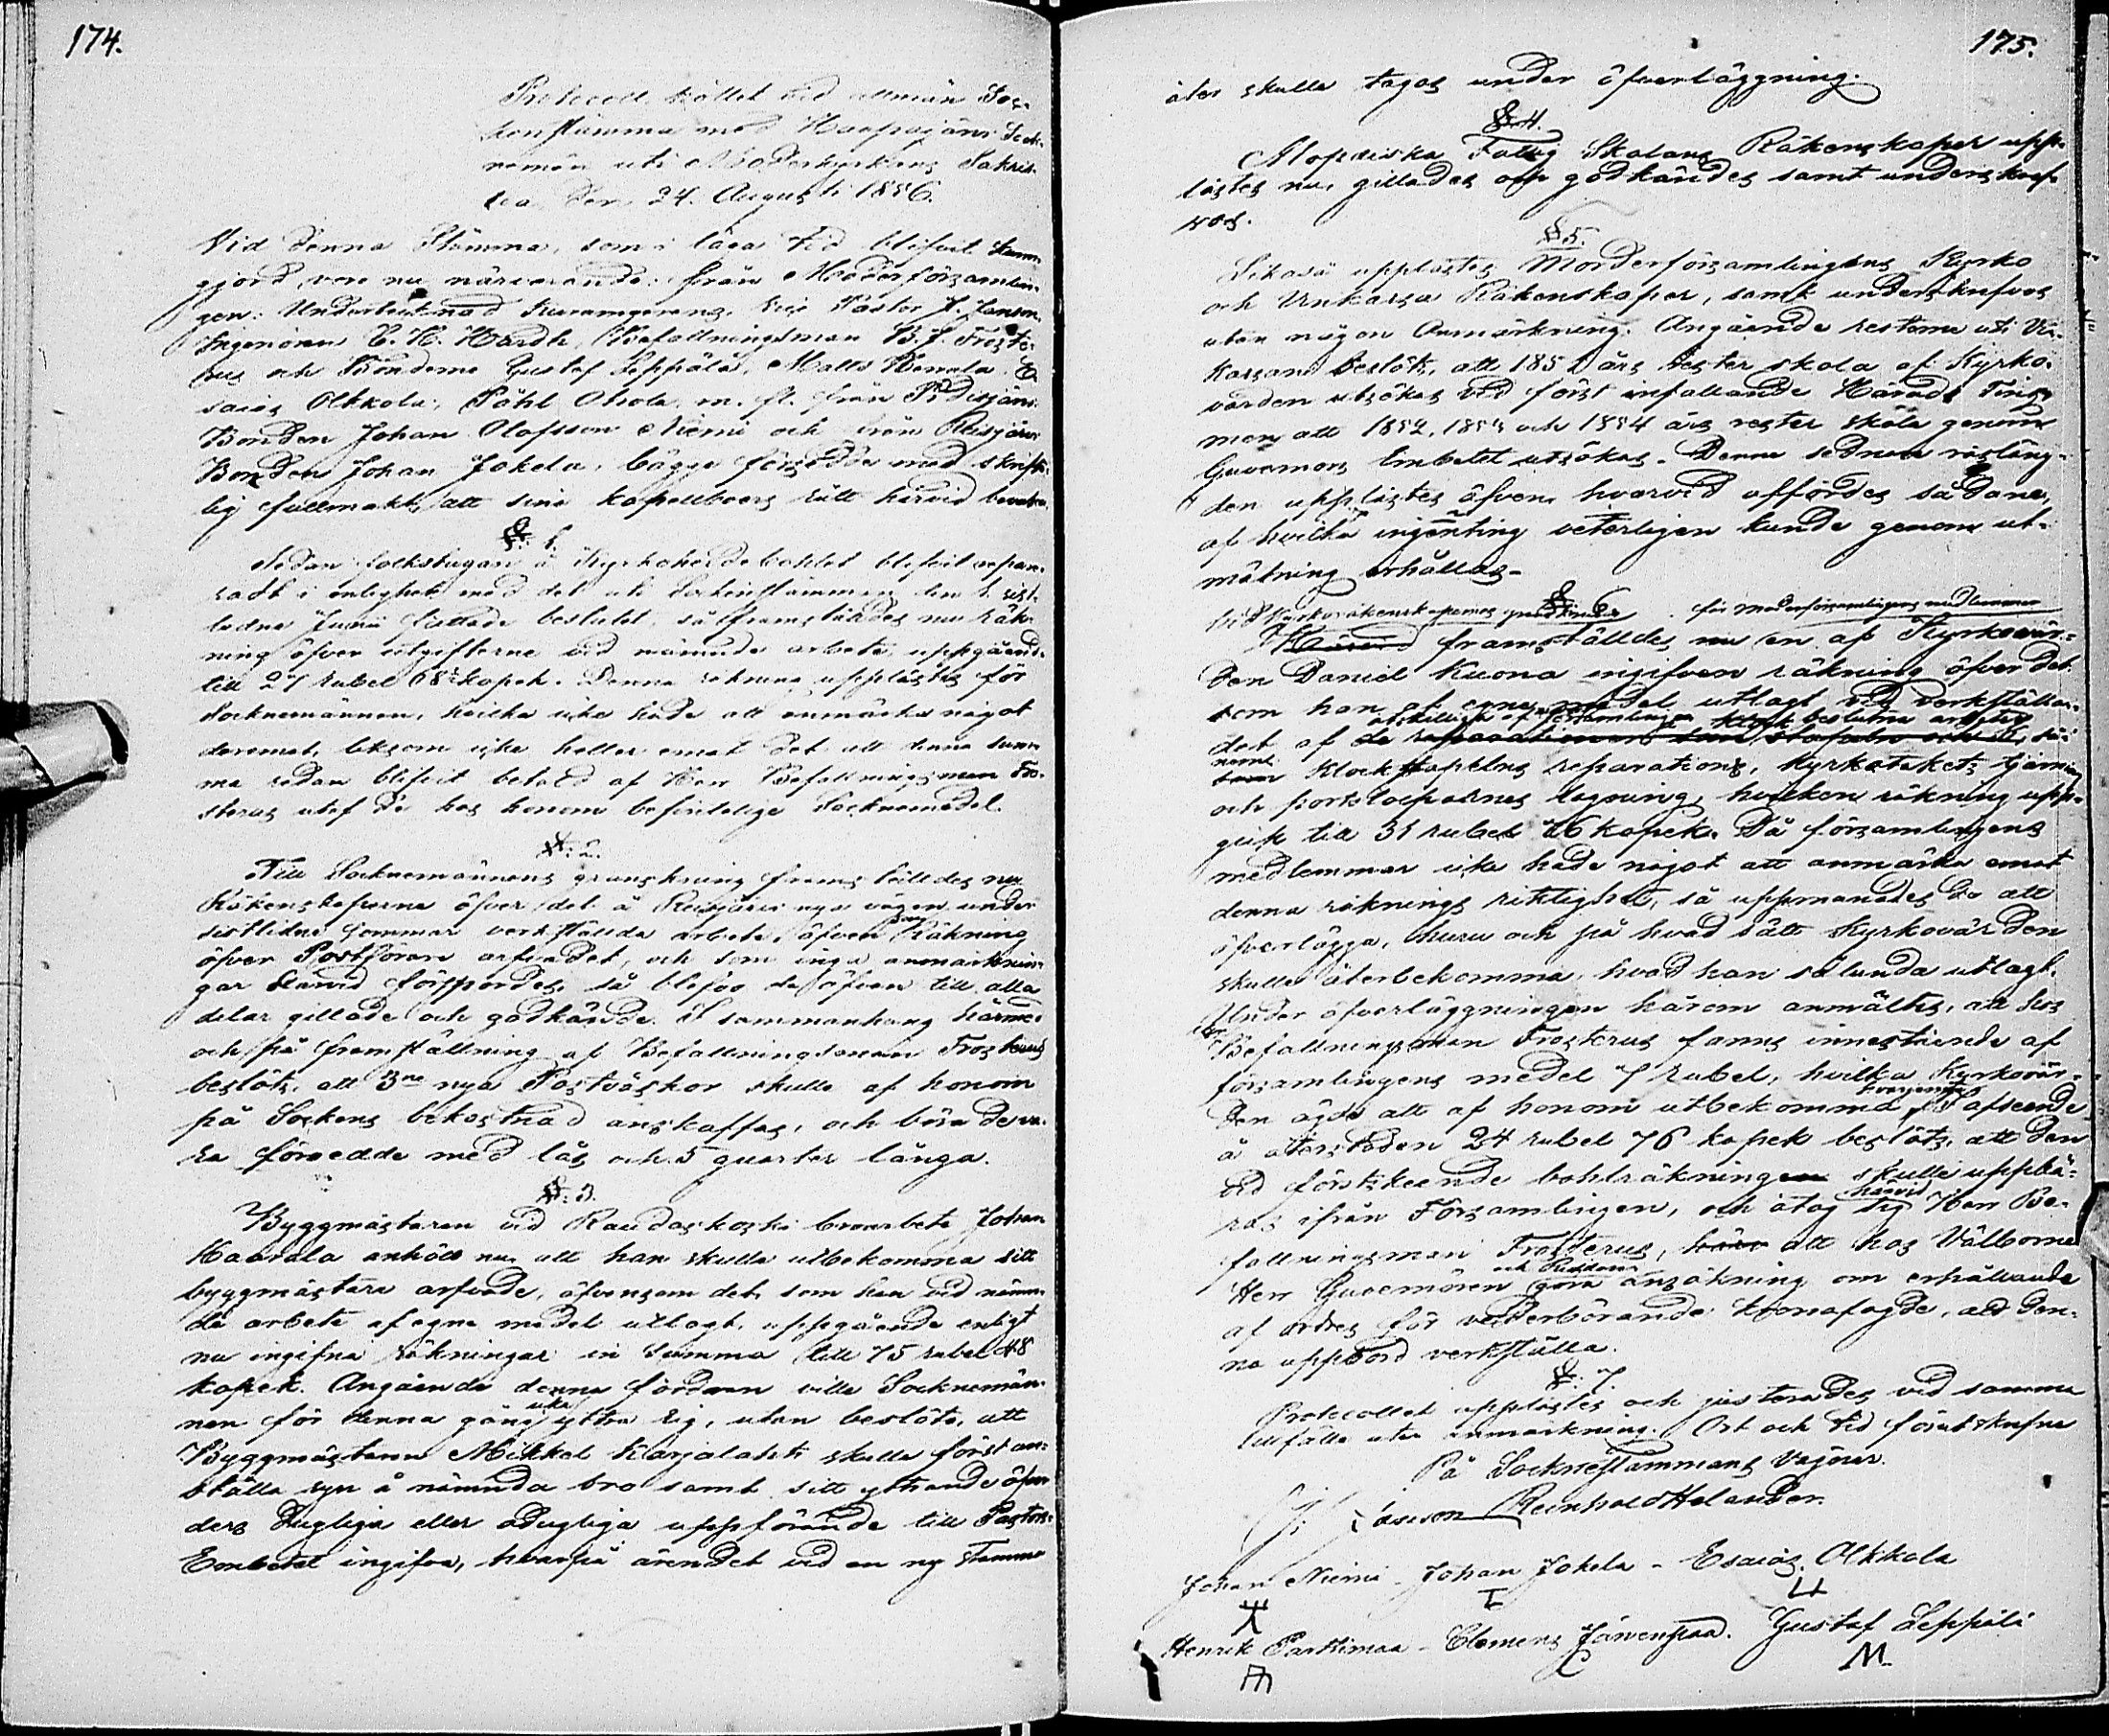 174.
Protocoll hållet vid allmän Soc-
kenstämma med Haapajärvi Sock-
nemän uti Moderkyrkans Sakris-
tia den 24. Augusti 1856.
Vid denna Stämma, som i laga tid blifvit kun-
gjord, voro nu närvarande: från Moderförsamlin-
gen: Undertecknad Vice Pastor J. Janson,
Ingeniören C. H. Hårdh, Befallningsman B. J. Froste-
rus och Bönderne Gustaf Seppälä, Matts E-
saias Olkkola, Påhl Ahola, m. fl. från Pidisjärvi
Bonden Johan Olofsson Niemi och från Reisjärvi
Bonden Johan Jokela, bägge försedde med skrift-
lig fullmakt, att sine kapellboers rätt härvid bevaka.
§. 1.
Sedan folkstugan å Kyrkoherdebohlet blifvit repare-
radt i enlighet med det uti Sockenstämman den 1. sist-
ledne Junii fattade beslutet, så framställdes nu räk-
ning öfver utgifterne vid nämnde arbete, uppgående
till 27 rubel 68½ kopek. Denna räkning upplästes för
Socknemännen, hvilka icke hade att anmärka något
deremot, liksom icke heller emot det att denna sum-
ma redan blifvit betald af Herr Befallningsman Fro-
sterus utaf de hos honom befintelige Socknemedel.
§. 2.
Till Socknemännens granskning framställdes nu
Räkenskaperne öfver det å Reisjärvi nya vägen under
sistlidne sommar verkställda arbete, äfven Räkning
öfver Postförare arfvodet, och som inga anmärknin-
gar härvid förspordes, så blefvo de äfven till alla
delar gillade och godkände. I sammanhang härmed
och på framställning af Befallningsman Frosterus
beslöts, att 3ne nya Postväskor skulle af honom
på Sockens bekostnad anskaffas, och böra de va-
ra försedde med lås och 5 quarter långa.
§. 3.
Byggmästaren vid Raudaskoski broarbete Johan
Haarala anhöll nu att han skulle utbekomma sitt
byggmästare arfvode, äfvensom det, som han vid nämn-
de arbete af egne medel utlagt, uppgående enligt
nu ingifna räkningar in Summa till 75 rubel 48
kopek. Angående denna fordran ville Socknemän-
nen för denna gång icke yttra sig, utan beslöto, att
Byggmästaren Mikkel Karjalahti skulle först an-
ställa syn å nämnda bro samt sitt yttrande öfver
ders dugliga eller odugliga uppförande till Pastors-
Embetet ingifva, hvarpå ärendet vid en ny Stämma
175.
åter skulle tagas under öfverläggning.
§ 4.
Fattig Skolans Räkenskaper upp-
lästes nu, gillades och godkändes samt underskref-
vos.
§ 5.
Likaså upplästes Moderförsamlingens Kyrko
och Vinkassa Räkenskaper, samt underskrefvos
utan någon Anmärkning. Angående resterne uti Vin-
kassan beslöts, att 1851 års rester skola af Kyrko-
värden utsökas vid först infallande Härads Ting,
men att 1852, 1853 och 1854 års rester skola genom
Guvernors Embetet utsökas. Denna sednare restläng-
den upplästes äfven, hvarvid affördes sådane,
af hvilka ingenting veterligen kunde genom ut-
mätning erhållas.
§ 6.
Vid Kyrkoräkenskapernes granskande för moderförsamlingens medlemmar
Härvid framställdes nu en af Kyrkovär-
den Daniel Kuona ingifven räkning öfver det
som han af egne medel utlagt vid verkställan-
det af åtskilliga af församlingen beslutna arbeten, så-
som Klockstapelns reparation, Kyrkotakets tjärning
och portstolparnes lagning, hvilken räkning upp-
gick till 31 rubel 76 kopek. Då församlingens
medlemmar icke hade något att anmärka emot
denna räknings riktighet, så uppmanades de att
öfverlägga, huru och på hvad sätt Kyrkovärden
skulle återbekomma, hvad han sålunda utlagt.
Under öfverläggningen härom anmältes, att hos
Herr Befallningsman Frosterus fanns innestående af
församlingens medel 7 rubel, hvilka Kyrkovär-
den ägde att af honom utbekomma, hvarjemte i afseende
å återstoden 24 rubel 76 kopek beslöts, att den
vid förstskeende bohlräkningen skulle uppbä-
ras ifrån Församlingen, och åtog sig härvid Herr Be-
fallningsman Frosterus, häro att hos Välborne
Herr Guvernören och Riddaren göra ansökning om erhållande
af ordres för vederbörande kronofogde, att den-
na uppbörd verkställa.
§. 7.
Protocollet upplästes och justerades vid samma
tillfälle utan anmärkning. Ort och tid förutskrefne
På Sockneståmmans vägnar.
J. Janson Reinhold Helander.
Johan Niemi - Johan Jokela - Esaias Olkkola
Henrik Parkkimaa - Clemens Järvenpää. Gustaf Seppälä